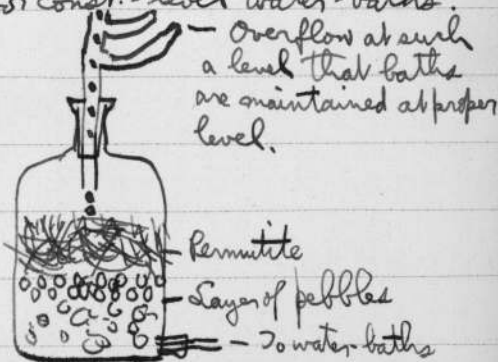 for const.-level water-baths.
Overflow at such
a level that baths
are maintained at proper
level.
Permutite
Layer of pebbles
To water-baths